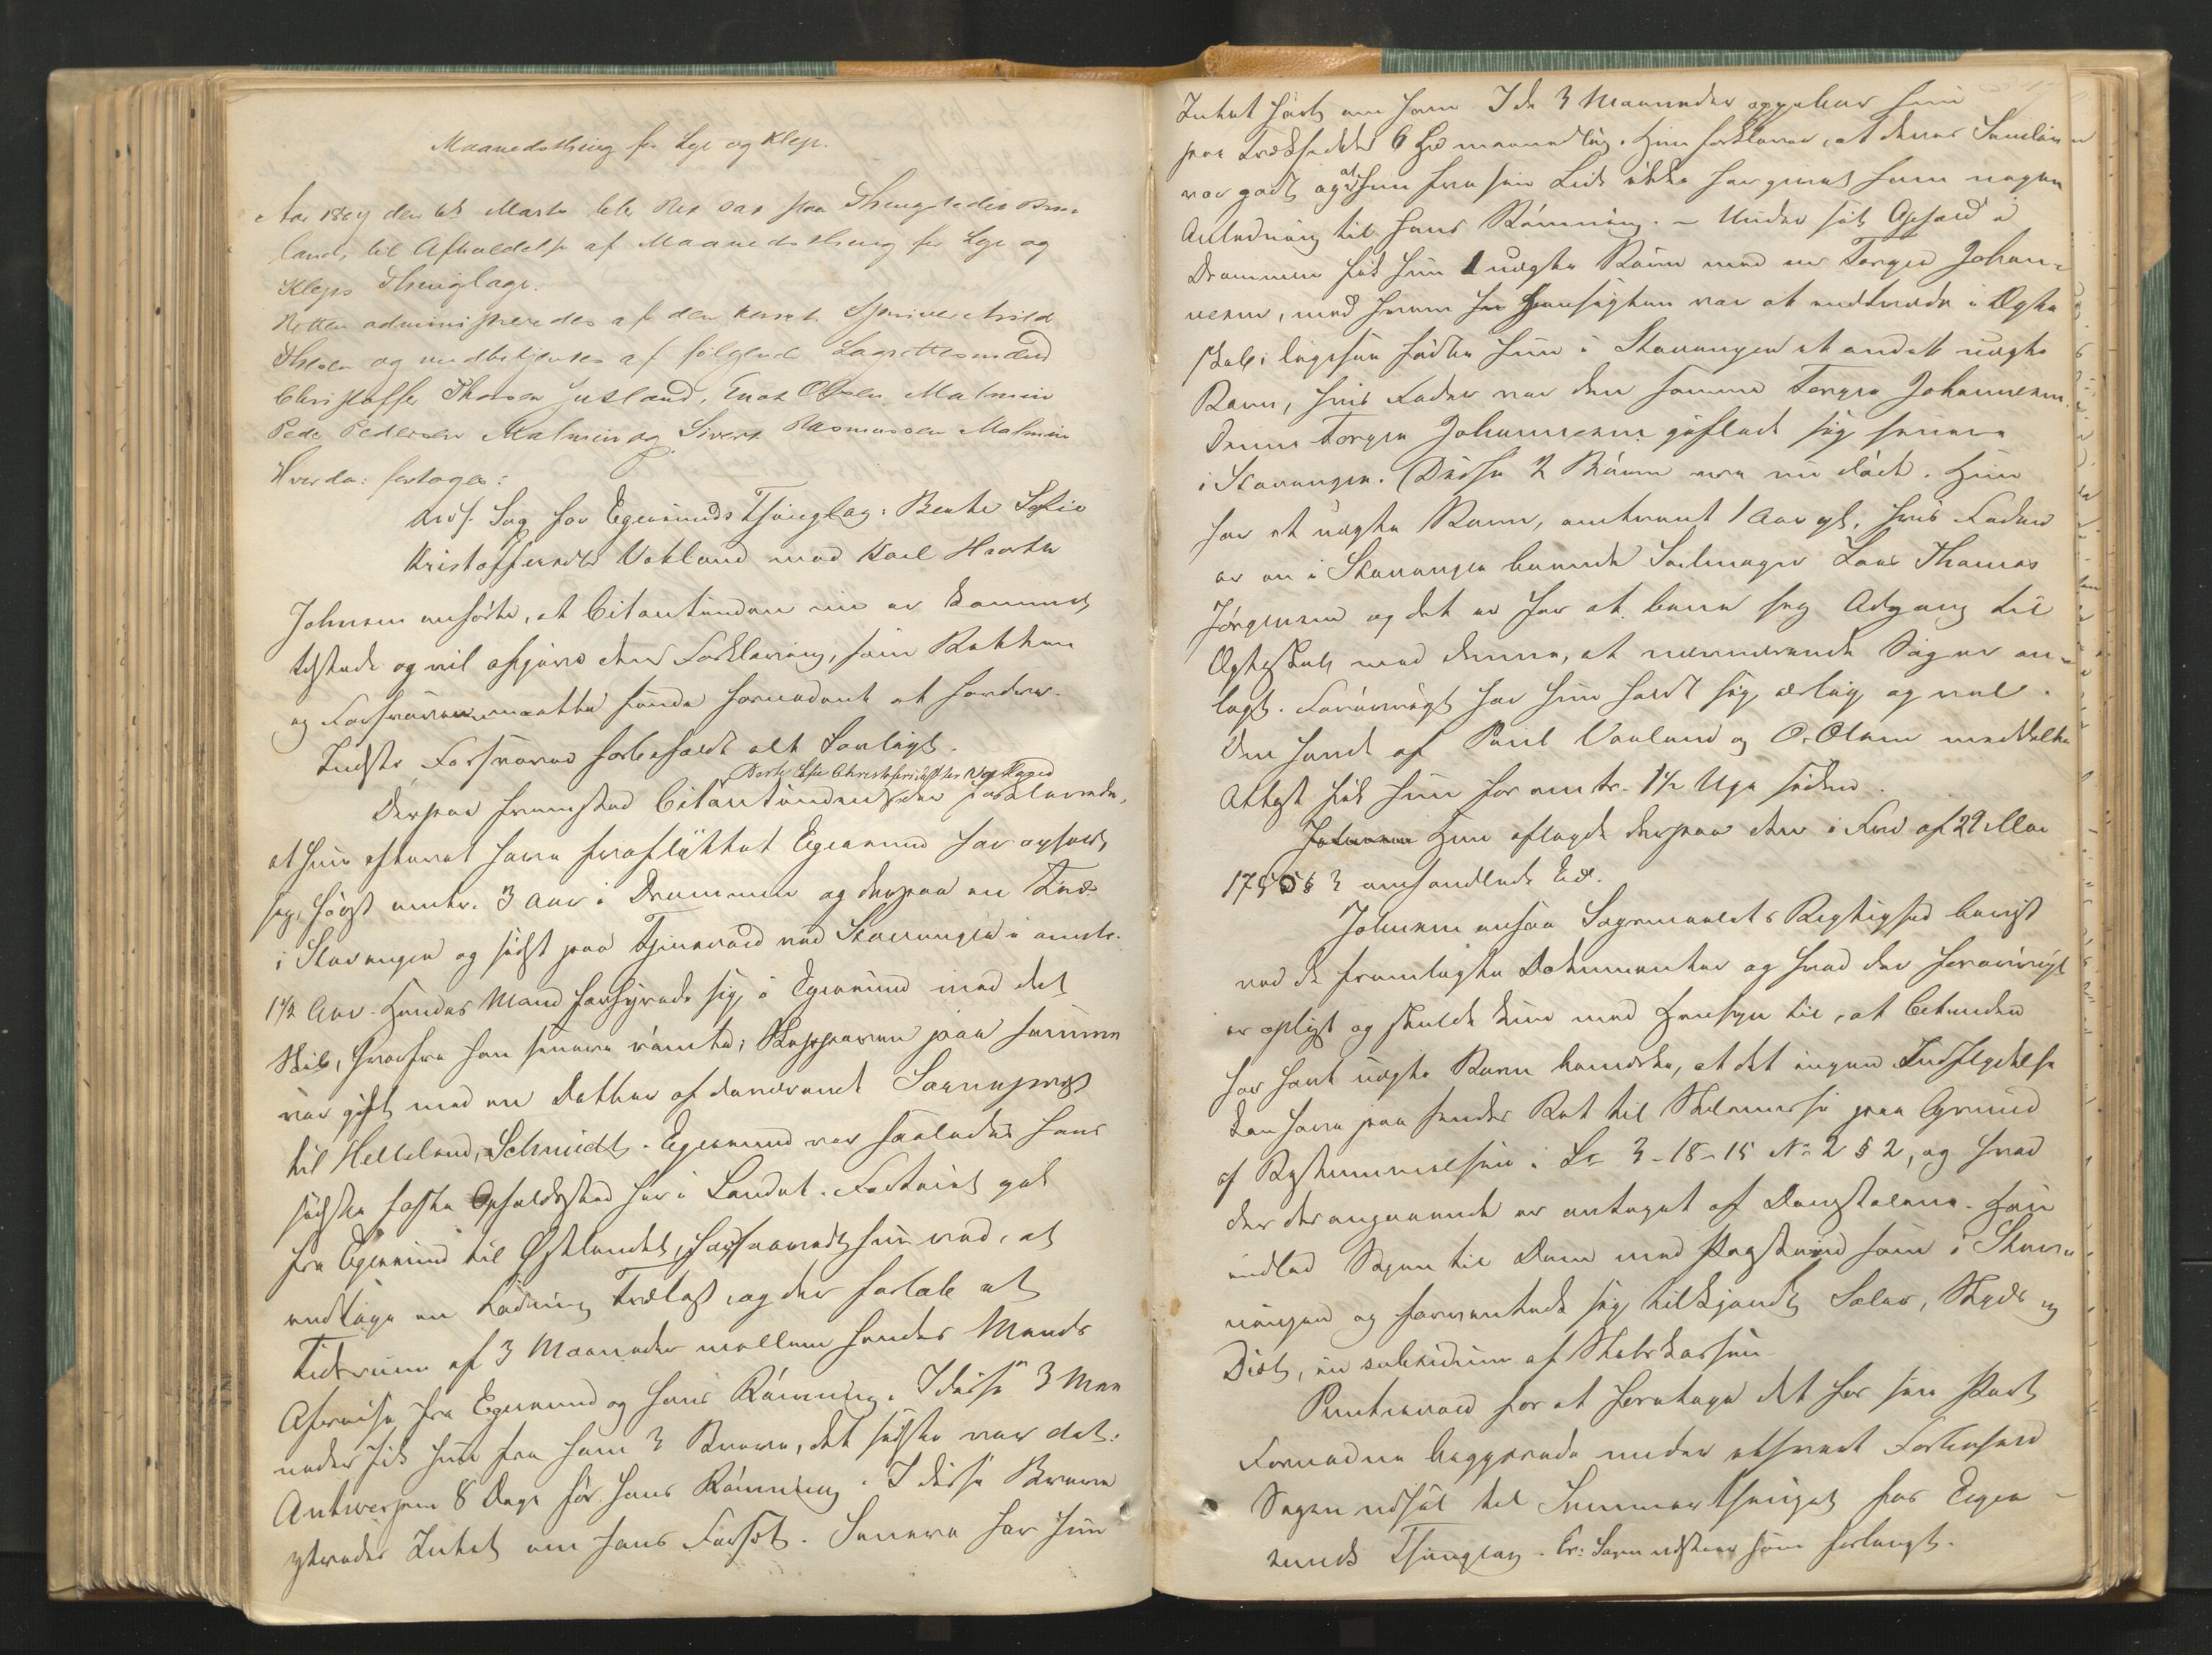 Maanedsthing for Lye og Klep.
Aar 1869 den 6te Marts blev Ret sat paa Thingstedet Bru-
land, til Afholdelse af Maanedsthing for Lye og
Kleps Thinglage.
Retten administreredes af den const. Sorenskriver Arild
Thesen og medbetjentes af følgende Lagrettesmænd
Christoffer Thorsen Jutland, Enok Olsen Malmin
Peder Pedersen Malmin og Sivert Rasmussen Malmin
Hvorda: fortoges:
Uds. Sag for Egersunds Thinglag: Bente Sofie
Kristoffersdtr Vatland mod Karl Haaste
Johnsen anførte, at Citantinden nu er kommet
tilstede og vil afgive den Forklaring, som Retten
og Forsvareren maatte finde fornødent at fordre.
Indstr. Forsvarer forbeholdt alt Lovligt.
Derpaa fremstod Citantinden Dorte Sofie Christoffersdatter Vatland der forklarede,
at hun efterat have fraflyttet Egersund har opholdt
sig, først omtr. 3 Aar i Drammen og derpaa en Tid
i Stavanger og sidst paa Tjensvold ved Stavanger i omtr.
1 1/2 Aar. Hendes Mand forhyrede sig i Egersund med det
Skib, hvorfra han senere rømte; Skipperen paa samme
var gift med en Datter af daværende Sognepræst
til Helleland, Schmidt. Egersund var saaledes hans
sidste faste Opholdssted her i Landet. Fartøiet gik
fra Egersund til Østlandet, forsaavidt hun ved, at
indtage en Ladning Trælast, og der forløb et
Tidsrum af 3 Maaneder mellem hendes Mands
Afreise fra Egersund og hans Rømning. I disse 3 Maa
neder fik hun fra ham 3 Breve, det sidste var dat.
Antwerpen 8 Dage før hans Rømning. I disse Breve
ytredes Intet om hans Forsæt. Senere har hun
Intet hørt om ham. I de 3 Maaneder oppebar hun
paa Trækseddel 6 Spd maanedlig. Hun forklarer, at deres Samliv
var godt og at hun fra sin Side ikke har givet ham nogen
Anledning til hans Rømning. – Under sit Ophold i
Drammen fik hun 1 uægte Barn med en Torger Johan-
nesen, med hvem Hensigten var at indtræde i Ægte
skab; ligesaa fødte hun i Stavanger et andet uægte
Barn, hvis Fader var den samme Torger Johannesen.
Denne Torger Johannesen giftede sig senere
i Stavanger. Disse 2 Børn ere nu døde. Hun
har et uægte Barn, omtrent 1 Aar gl., hvis Fader
er en i Stavanger boende Seilmager Lars Thomas
Jørgensen og det er for at bane sig Adgang til
Ægteskab med denne, at nærværende Sag er an-
lagt. Forøvrigt har hun holdt sig ærlig og vel.
Den hende af Paul Vaaland og O. Olsen meddelte
Attest fik hun for omtr. 1 1/2 Uge siden.
Hun aflagde derpaa den i Frd. af 29 Mai
1750 § 3 omhandlede Ed.
Johnsen ansaa Sagsmaalets Rigtighed bevist
ved de fremlagte Dokumenter og hvad der forøvrigt
er oplyst og skulde kun med Hensyn til, at Citantinden
har havt uægte Barn bemærke, at det ingen Indflydelse
kan have paa hendes Ret til Skilsmisse paa Grund
af Bestemmelsen i L. 3-18-15 No 2 § 2, og hvad
der derangaaende er antaget af Domstolene. Han
indlod Sagen til Dom med Paastand som i Stevn-
ingen og formentede sig tilkjendt Salær, Skyds og
Diæt, in subsidium af Statskassen.
for at foretage det for sin Part
Fornødne begjærede under ethvert Forbehold
Sagen udsat til Sommerthinget for Eger-
sunds Thinglag. Cr: Sagen udstaar som forlangt.